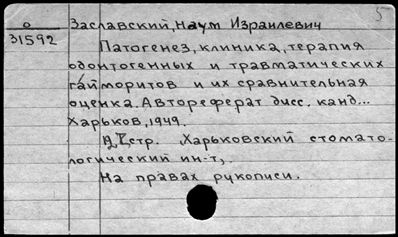 5
О Заславский, Наум Израилевич
31592
Патогенез, клиника, терапия
одонтогенных и травматических
гайморитов и их сравнительная
оценка. Автореферат дисс. канд...
Харьков, 1949.
стр. (Харьковский стомато-
логический ин-т).
На правах рукописи.